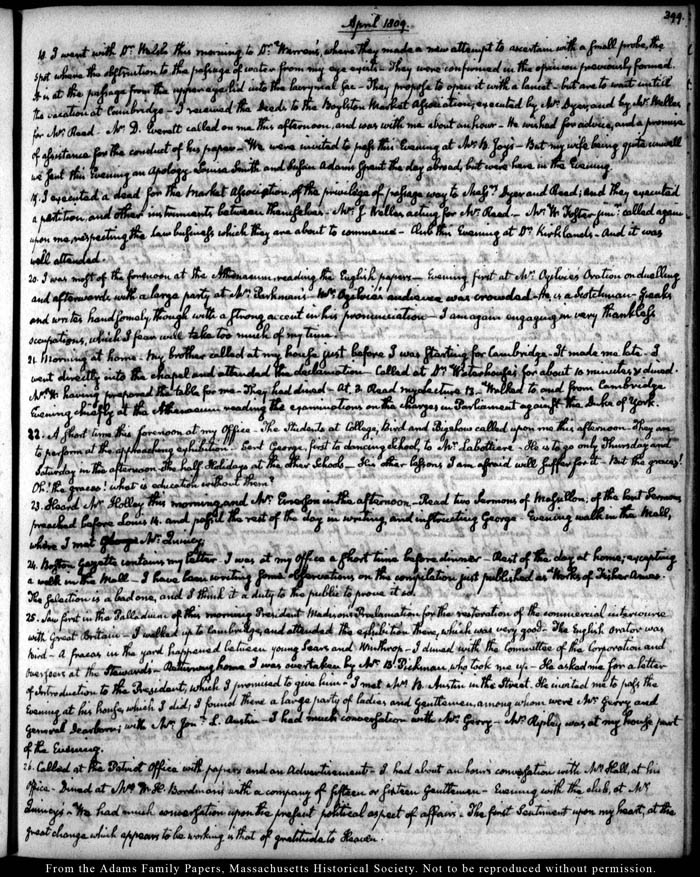 299.
April 1809.
18. I went with Dr. Welsh this morning to Dr. Warren's, where they made a new attempt to ascertain with a small probe, the
spot where the obstruction to the passage of water from my eye exists. They were confirmed in the opinion previously formed.
It is at the passage from the upper eye lid into the lacrymal sac - They propose to open it with a lancet - but are to wait until
the vacation at Cambridge - I received the Deeds to the Boylston Market Association, executed by Mr. Dyer, and by Mr. Waller
for Mr. Read. Mr. D. Everett called on me this afternoon, and was with me about an hour - He wished for advice, and a promise
of assistance for the conduct of his paper - We were invited to pass this Evening at Mr. B. Joy's - But my wife being quite unwell
we sent this Evening an Apology. Louisa Smith and Susan Adams spent the day abroad, but were here in the Evening.
19. I executed a deed for the Market Association, of the privilege of passage way to Messrs. Dyer and Read; and they executed
a partition, and other instruments between themselves - Mr. J. Waller acting for Mr. Read - Mr. W. Foster junr. called again
upon me, respecting the Law business which they are about to commence - Club this Evening at Dr. Kirkland's - And it was
well attended.
20. I was most of the forenoon at the Athenaeum, reading the English papers - Evening first at Mr. Ogilvie's Oration on duelling
and afterwards with a large party at Mr. Parkman's - Mr. Ogilvie's audience was crowded - He is a Scotchman - Speaks
and writes handsomely though with a strong accent in his pronunciation - I am again engaging in very thankless
occupations, which I fear will take too much of my time.
21. Morning at home - My brother called at my house just before I was starting for Cambridge - It made me late - I
went directly into the chapel and attended the declamation - Called at Dr. Waterhouse's for about 10 minutes & dined.
Mrs. W. having prepared the table for me - They had dined - At 2. Read my lecture 13. Walked to and from Cambridge
Evening chiefly at the Athenaeum reading the examinations on the charges in Parliament against the Duke of York.
22. A short time this forenoon at my Office - The Students at College, Bird and Bigelow called upon me this afternoon - They are
to perform at the approaching exhibition. Sent George, first to dancing school, to Mr. Labottiere - He is to go only Thursday and
Saturday in the afternoon the half Holidays at the other Schools - His other lessons I am afraid will suffer for it - But the graces!
Oh! the graces! what is education without them?
23. Heard Mr. Holley this morning, and Mr. Emerson in the afternoon - Read two Sermons of Massillon; of the Lent Sermons,
preached before Louis 14. and pass'd the rest of the day in writing, and instructing George - Evening walk in the Mall,
where I met Mr. Quincy.
24. Boston Gazette contains my letter. I was at my Office a short time before dinner - Rest of the day at home; excepting
a walk in the Mall - I have been writing some observations on the compilation just published as "Works of Fisher Ames.
The selection is a bad one, and I think it a duty to the public to prove it so.
25. Saw first in the Palladium of this morning President Madison's Proclamation for the restoration of the commercial intercourse
with Great Britain - I walked up to Cambridge, and attended the exhibition there, which was very good - The English Orator was
Bird - A fracas in the yard happened between young Sears and Winthrop - I dined with the Committee of the Corporation and
Overseers at the Steward's - Returning home I was overtaken by Mr. B. Pickman, who took me up - He asked me for a letter
of Introduction to the President, which I promised to give him - I met Mr. B. Austin in the Street. He invited me to pass the
Evening at his house, which I did; I found there a large party of ladies and Gentlemen, among whom were Mr. Gerry and
General Dearborn; with Mr. Jona. L. Austin - I had much conversation with Mr. Gerry - Mr. Ripley was at my house part
of the Evening.
26. Called at the Patriot Office with papers and an Advertisement - I had about an hour's conversation with Mr. Hall, at his
Office - Dined at Mr. W. H. Bordman's with a company of fifteen or sixteen Gentlemen - Evening with the club, at Mr.
Quincy's - We had much conversation upon the present political aspect of affairs - The first Sentiment upon my heart, at the
great change which appears to be working is that of gratitude to Heaven.
From the Adams Family Papers, Massachusetts Historical Society. Not to be reproduced without permission.